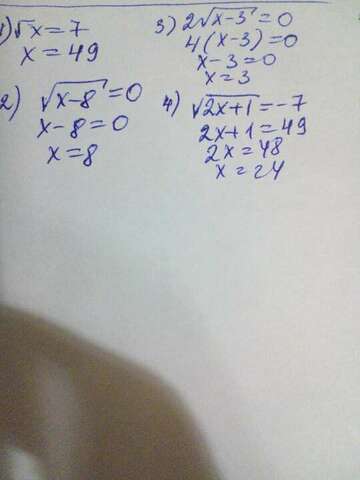 1) √x = 7
x = 49
2) √x-8 = 0
x-8 = 0
x = 8
3) 2√x-3 = 0
4(x-3) = 0
x-3 = 0
x = 3
4) √2x+1 = -7
2x+1 = 49
2x = 48
x = 24